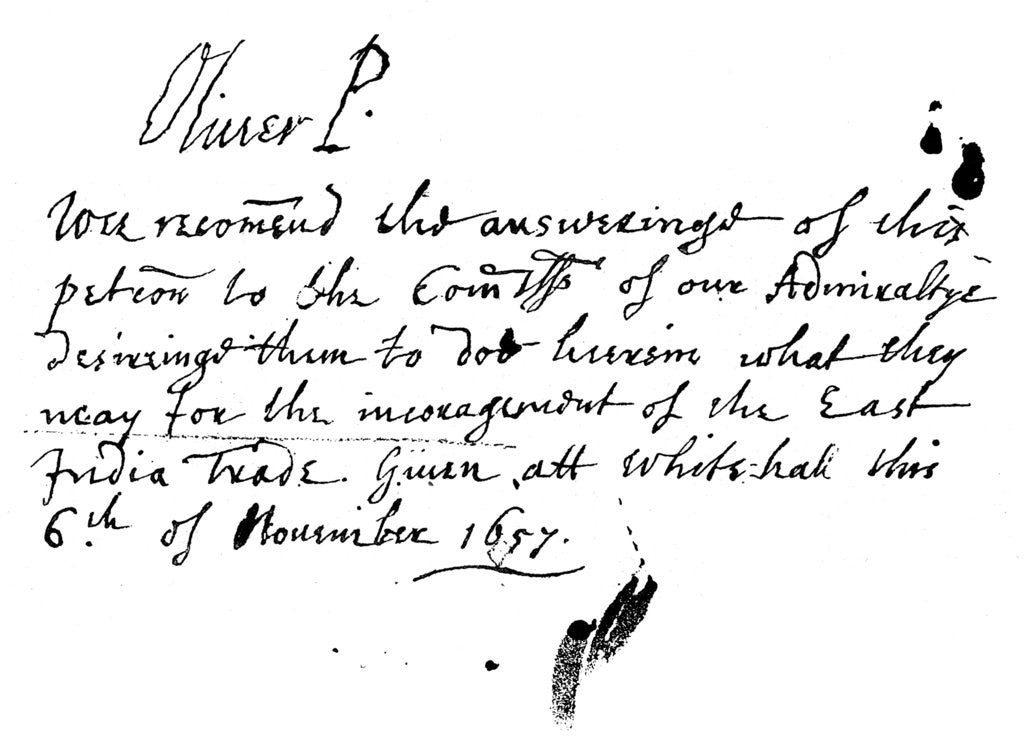 Oliuer P.
Wee recom̄end the answeringe of this
petic̄on to the Com̄issrs of our Admiraltye
desireinge them to doe heerein what they
may for the incoragement of the East
India Trade. Giuen att White-hall this
6.th of Nouember 1657.